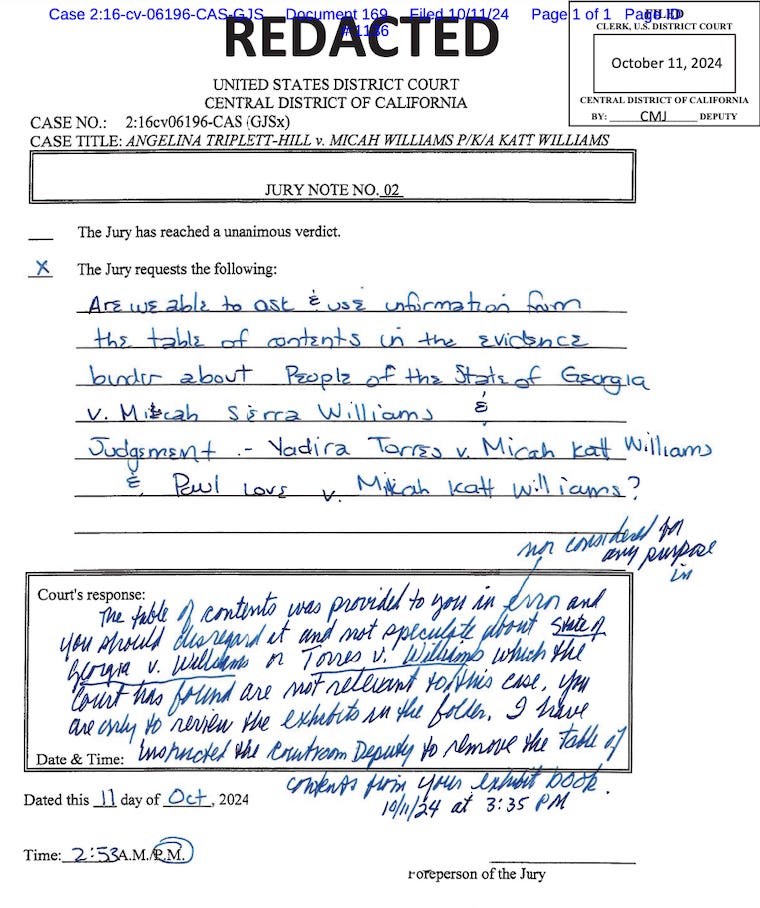 Case 2:16-cv-06196-CAS-GJS Document 169 Filed 10/11/24 Page 1 of 1 Page ID
#:1136
REDACTED
FILED
CLERK, U.S. DISTRICT COURT
October 11, 2024
CENTRAL DISTRICT OF CALIFORNIA
BY: CMJ DEPUTY
UNITED STATES DISTRICT COURT
CENTRAL DISTRICT OF CALIFORNIA
CASE NO.: 2:16cv06196-CAS (GJSx)
CASE TITLE: ANGELINA TRIPLETT-HILL v. MICAH WILLIAMS P/K/A KATT WILLIAMS
JURY NOTE NO. 02
The Jury has reached a unanimous verdict.
X The Jury requests the following:
Are we able to ask & use information from
the table of contents in the evidence
binder about People of the State of Georgia
v. Micah Sierra Williams &
Judgsment - Yadira Torres v. Micah Katt Williams
& Paul Love v. Micah Katt Williams?
nor considered for
any purpose
in
Court's response:
The table of contents was provided to you in error and
you should disregard it and not speculate about State of
Georgia v. Williams or Torres v. Williams which the
Court has found are not relevant to this case. You
are only to review the exhibits in the folder. I have
Date & Time: instructed the Courtroom Deputy to remove the table of
contents from your exhibit book.
10/11/24 at 3:35 PM
Dated this 11 day of Oct, 2024
Time: 2:53 A.M./P.M.
Foreperson of the Jury